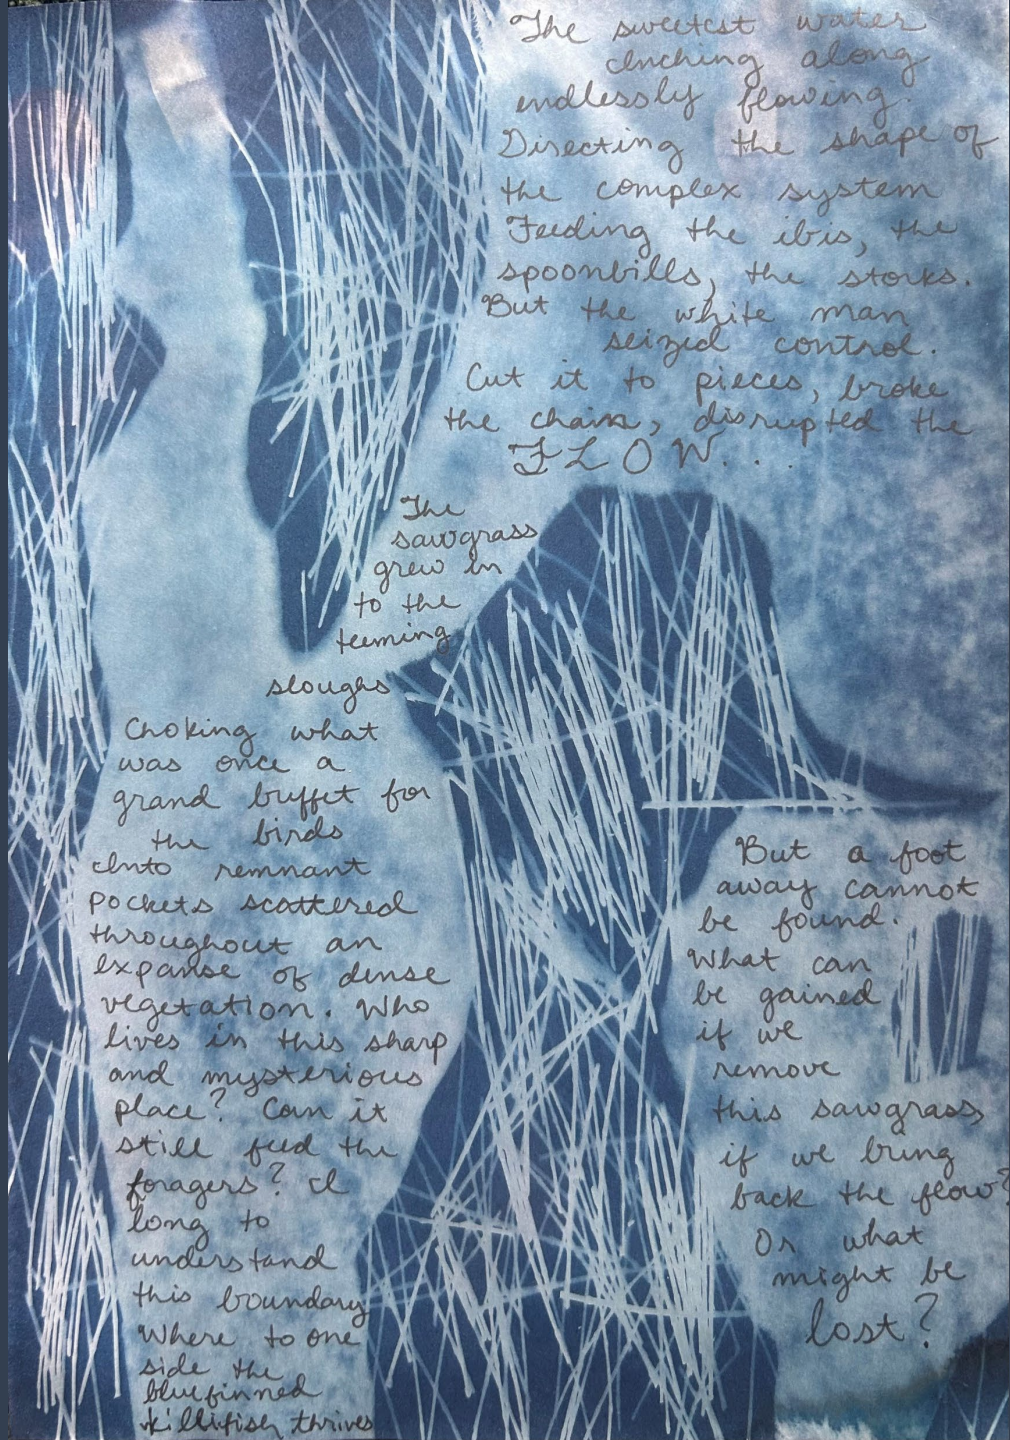 The sweetest water
Inching along
endlessly flowing.
Directing the shape of
the complex system
Feeding the ibis, the
spoonbills, the storks.
But the white man
seized control.
Cut it to pieces, broke
the chain, disrupted the
FLOW...
The
sawgrass
grew in
to the
teeming
sloughs
Choking what
was once a
grand buffet for
the birds
Into remnant
pockets scattered
throughout an
expanse of dense
vegetation. Who
lives in this sharp
and mysterious
place? Can it
still feed the
foragers? I
long to
understand
this boundary
Where to one
side the
bluefinned
killifish thrives
But a foot
away cannot
be found.
What can
be gained
if we
remove
this sawgrass,
if we bring
back the flow?
Or what
might be
lost?